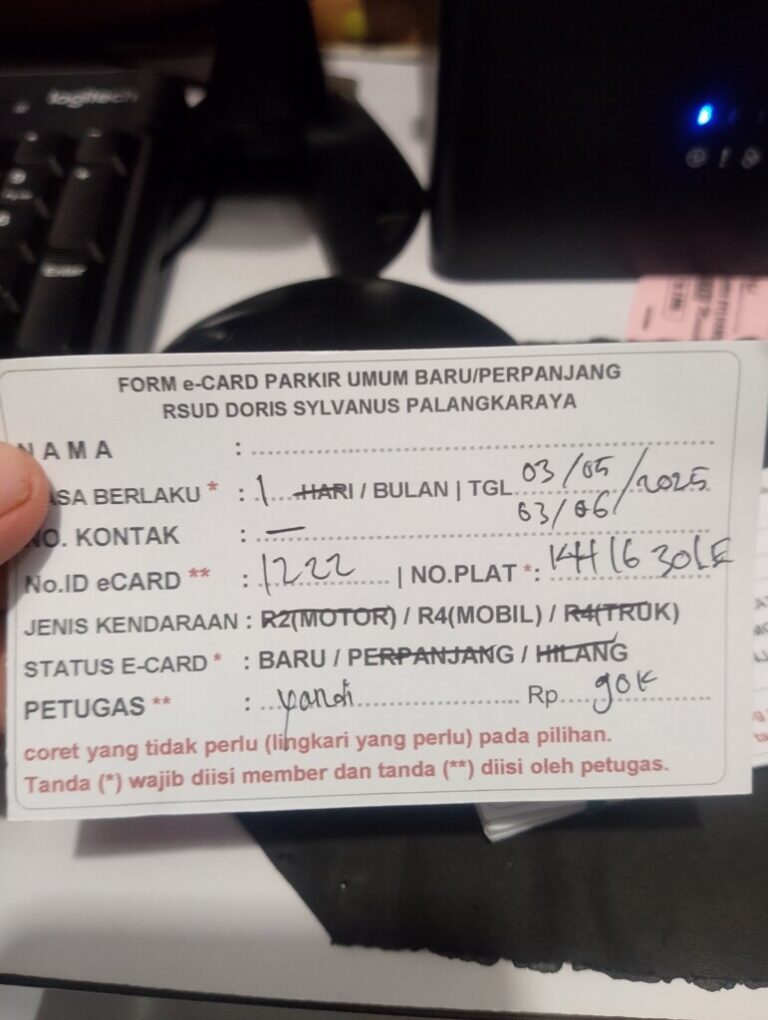 logitech
Enter
FORM e-CARD PARKIR UMUM BARU/PERPANJANG
RSUD DORIS SYLVANUS PALANGKARAYA
NAMA :
ASA BERLAKU * : 1 HARI / BULAN | TGL 03/05 /2025
03/06
NO. KONTAK : —
No.ID eCARD ** : 1222 | NO.PLAT *: KH 16
JENIS KENDARAAN : R2(MOTOR) / R4(MOBIL) / R4(TRUK)
STATUS E-CARD * : BARU / PERPANJANG / HILANG
PETUGAS ** : yandi Rp. 90K
coret yang tidak perlu (lingkari yang perlu) pada pilihan.
Tanda (*) wajib diisi member dan tanda (**) diisi oleh petugas.